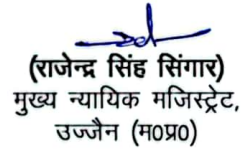 (राजेन्द्र सिंह सिंगार)
मुख्य न्यायिक मजिस्ट्रेट,
उज्जैन (म०प्र०)